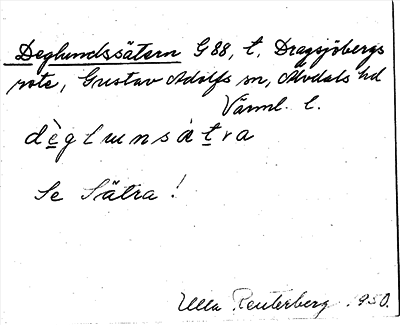 Deglundssätern G 88, t. Dragsjöbergs
rote, Gustav Adolfs sn, Älvdals hd
Värml. l.
dèglunsàtra
Se Sätra!
Ulla Reuterberg 1950.